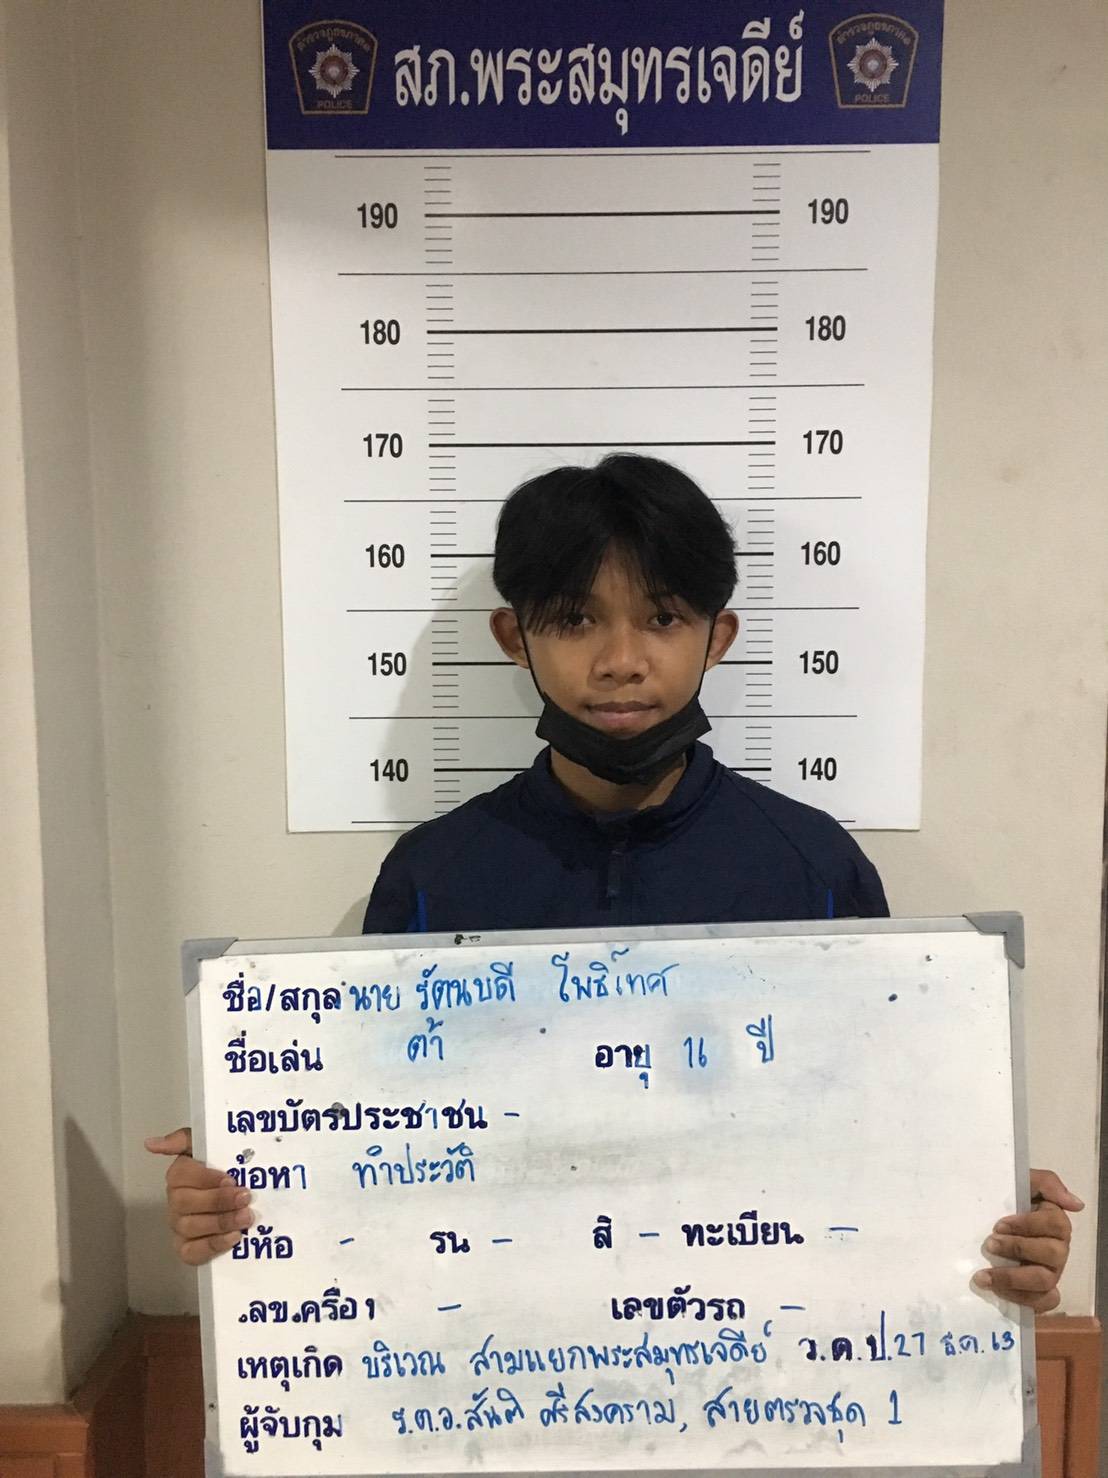 ตำรวจภูธรภาค ๑ POLICE สภ.พระสมุทรเจดีย์ ตำรวจภูธรภาค ๑ POLICE
190 190
180 180
170 170
160 160
150 150
140 140
ชื่อ/สกุล นาย รัตนบดี โพธิ์เทศ
ชื่อเล่น ต้า อายุ 16 ปี
เลขบัตรประชาชน -
ข้อหา ทำประวัติ
ยี่ห้อ - รุ่น - สี - ทะเบียน -
เลขเครื่อง - เลขตัวรถ -
เหตุเกิด บริเวณ สามแยกพระสมุทรเจดีย์ ว.ด.ป. 27 ธ.ค. 63
ผู้จับกุม ร.ต.อ. สันติ ศรีสงคราม, สายตรวจชุด 1